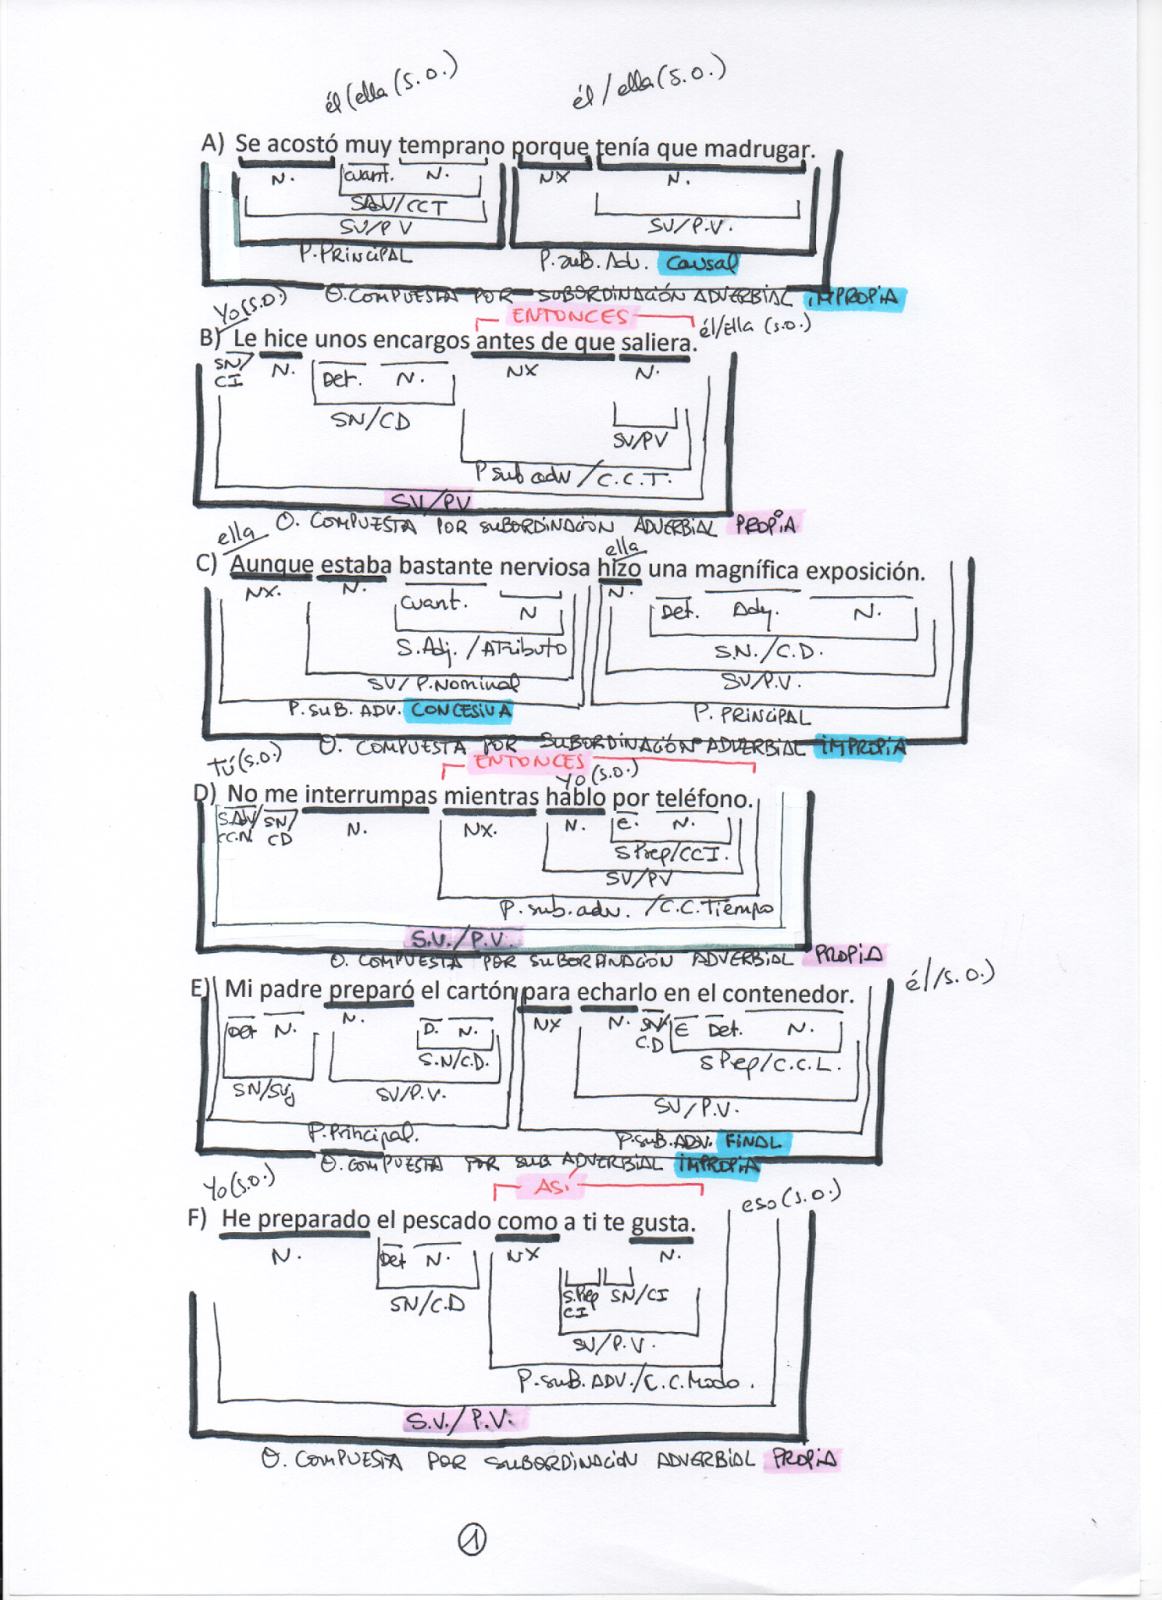 él/ella (S.O.) él/ella (S.O.)
A) Se acostó muy temprano porque tenía que madrugar.
N. Cuant. N. NX N.
SADV/CCT
SV/PV SV/P.V.
P. PRINCIPAL P. sub. Adv. Causal
O. COMPUESTA POR SUBORDINACIÓN ADVERBIAL IMPROPIA
Yo (S.O.) ENTONCES él/ella (S.O.)
B) Le hice unos encargos antes de que saliera.
SN/CI N. Det. N. NX N.
SN/CD SV/PV
P sub adv / C.C.T.
SV/PV
O. COMPUESTA POR SUBORDINACIÓN ADVERBIAL PROPIA
ella ella
C) Aunque estaba bastante nerviosa hizo una magnífica exposición.
NX. N. Cuant. N N. Det. Adj. N.
S. Adj. / Atributo S.N./C.D.
SV/P.Nominal SV/P.V.
P. SUB. ADV. CONCESIVA P. PRINCIPAL
O. COMPUESTA POR SUBORDINACIÓN ADVERBIAL IMPROPIA
Tú (S.O.) ENTONCES Yo (S.O.)
D) No me interrumpas mientras hablo por teléfono.
S.ADV/CC.N. SN/CD N. NX. N. E. N.
S Prep/CCI.
SV/PV
P. sub. adv. /C.C.Tiempo
S.V./P.V.
O. COMPUESTA POR SUBORDINACIÓN ADVERBIAL PROPIA
él/S.O.)
E) Mi padre preparó el cartón para echarlo en el contenedor.
Det N. N. D. N. NX N. SN/C.D E Det. N.
S.N/C.D. S Prep/C.C.L.
SN/Suj SV/P.V. SV/P.V.
P. Principal. P.SUB.ADV. FINAL
O. COMPUESTA POR SUB ADVERBIAL IMPROPIA
Yo (S.O.) ASÍ eso (S.O.)
F) He preparado el pescado como a ti te gusta.
N. Det N. NX N.
SN/C.D S.Prep CI SN/CI
SV/P.V.
P. SUB. ADV./C.C.Modo.
S.V./P.V.
O. COMPUESTA POR SUBORDINACIÓN ADVERBIAL PROPIA
1